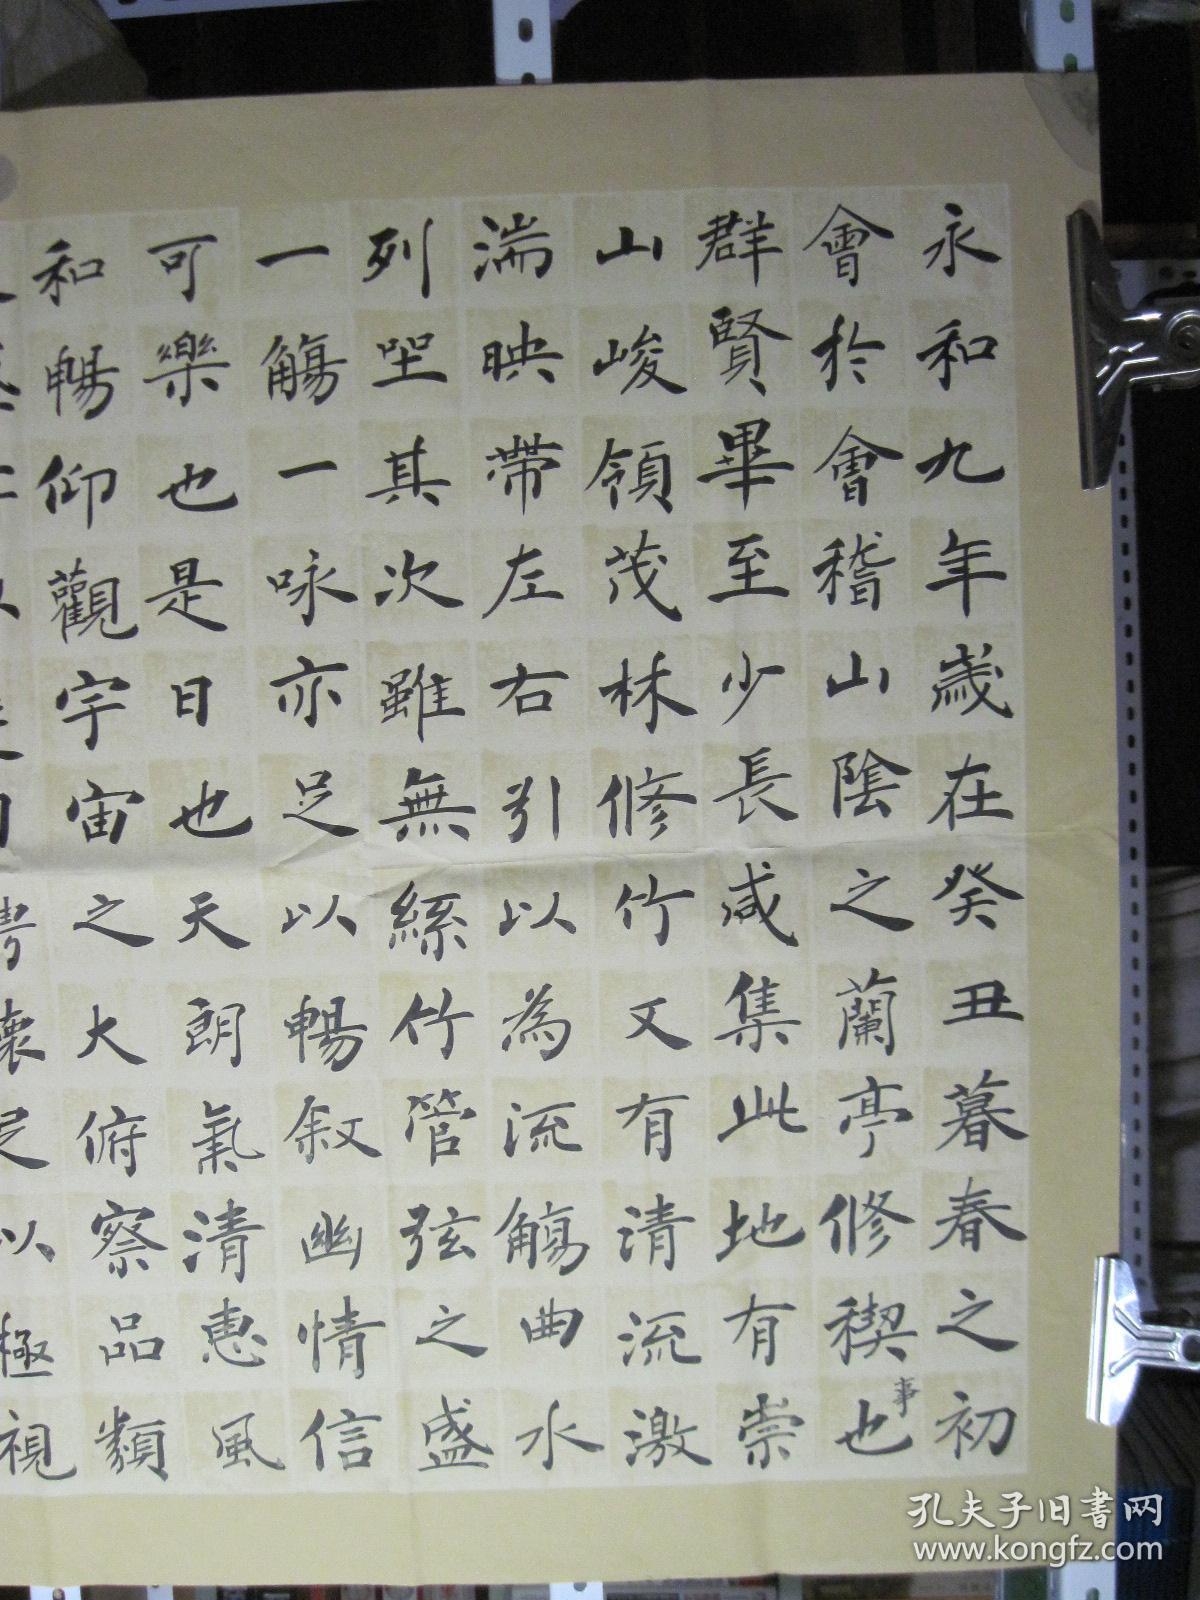 永和九年歲在癸丑暮春之初
會於會稽山陰之蘭亭修稧事也
群賢畢至少長咸集此地有崇
山峻領茂林修竹又有清流激
湍映帶左右引以為流觴曲水
列坐其次雖無絲竹管弦之盛
一觴一咏亦足以暢叙幽情信
可樂也是日也天朗氣清惠風
和暢仰觀宇宙之大俯察品類
騁懷足以極視
孔夫子旧书网
www.kongfz.com